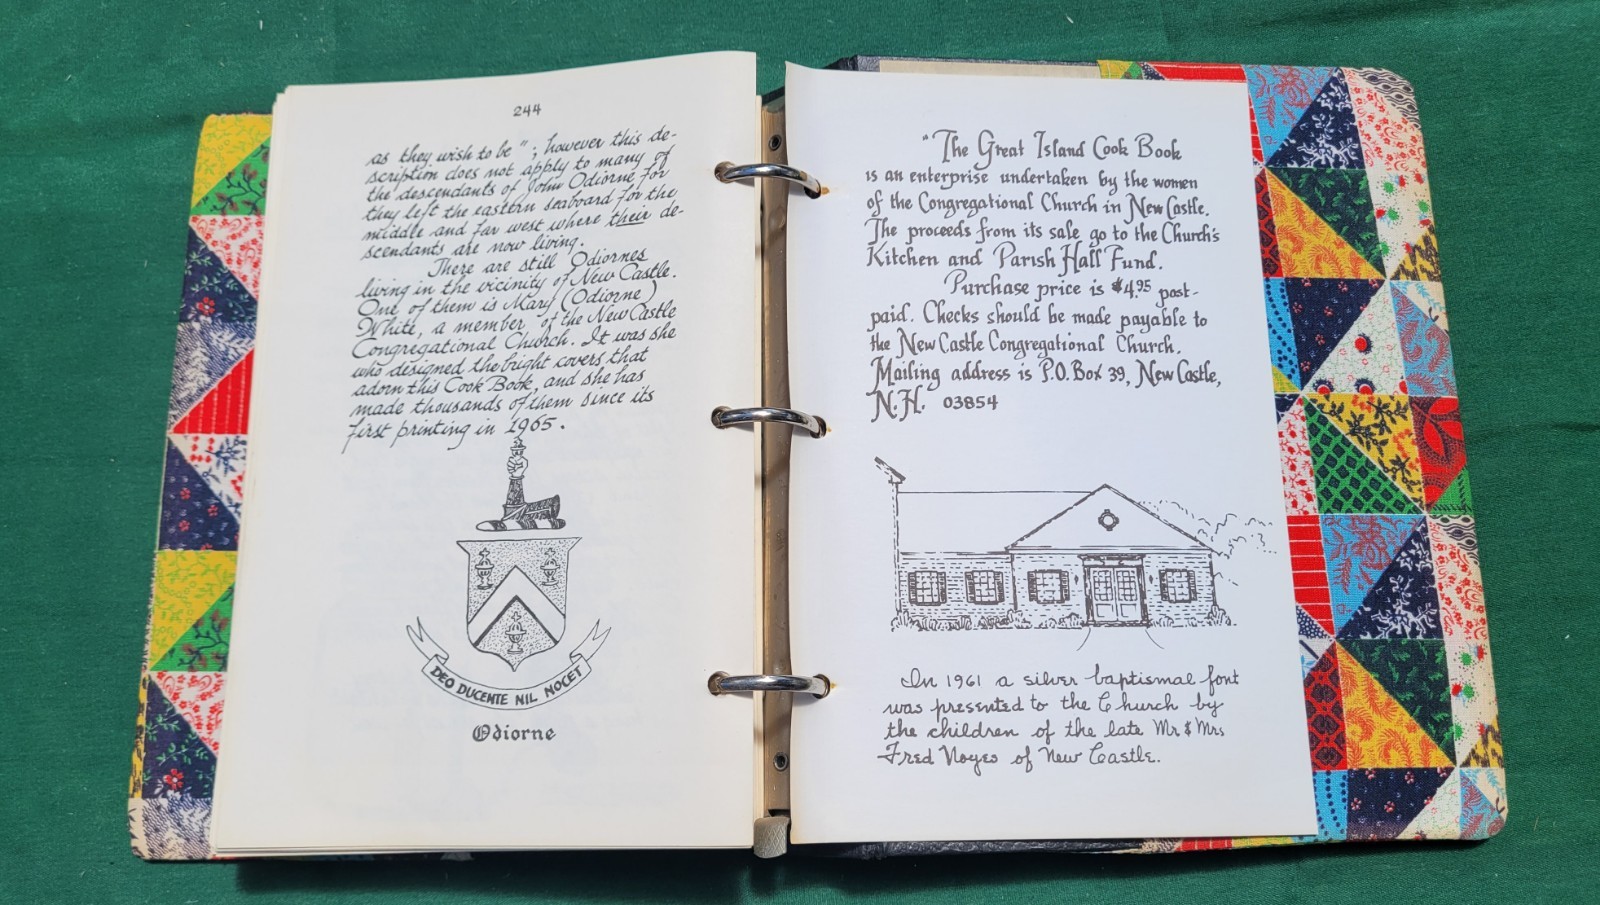 244
as they wish to be"; however this de-
scription does not apply to many of
the descendants of John Odiorne for
they left the eastern seaboard for the
middle and far west where their de-
scendants are now living.
There are still Odiornes
living in the vicinity of New Castle.
One of them is Mary (Odiorne)
White, a member of the New Castle
Congregational Church. It was she
who designed the bright covers that
adorn this Cook Book, and she has
made thousands of them since its
first printing in 1965.
DEO DUCENTE NIL NOCET
Odiorne
"The Great Island Cook Book
is an enterprise undertaken by the women
of the Congregational Church in New Castle.
The proceeds from its sale go to the Church's
Kitchen and Parish Hall Fund.
Purchase price is $4.95 post-
paid. Checks should be made payable to
the New Castle Congregational Church.
Mailing address is P.O. Box 39, New Castle,
N.H. 03854
In 1961 a silver baptismal font
was presented to the Church by
the children of the late Mr & Mrs
Fred Noyes of New Castle.